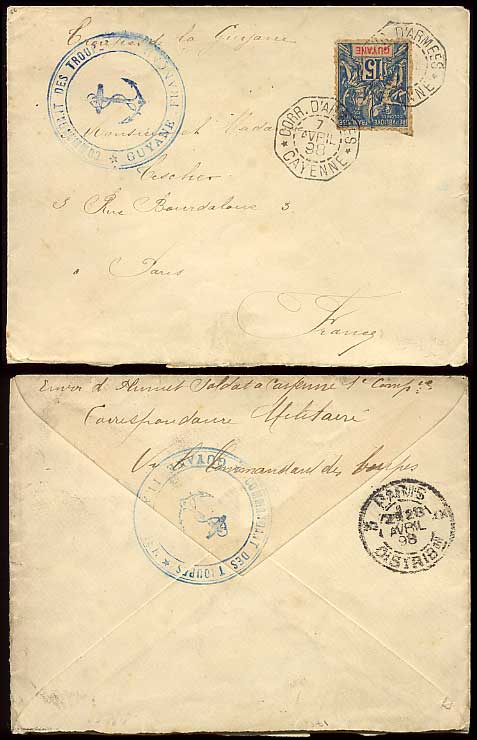 Courrier de la Guyane
COMMANDANT DES TROUPES
GUYANE FRANÇAISE
CORR. D'ARMEES
CAYENNE
GUYANE
15
REPUBLIQUE FRANCAISE
CORR. D'ARMEES
7
AVRIL
98
CAYENNE
Monsieur et Madame
Tescher
3 Rue Bourdaloue 3
a Paris
France
Envoi d' Humet Soldat a Cayenne 1e Compie
Correspondance Militaire
Vu Le Commandant des troupes
COMMANDANT DES TROUPES
GUYANE
PARIS
28
AVRIL
98
DISTRIBON